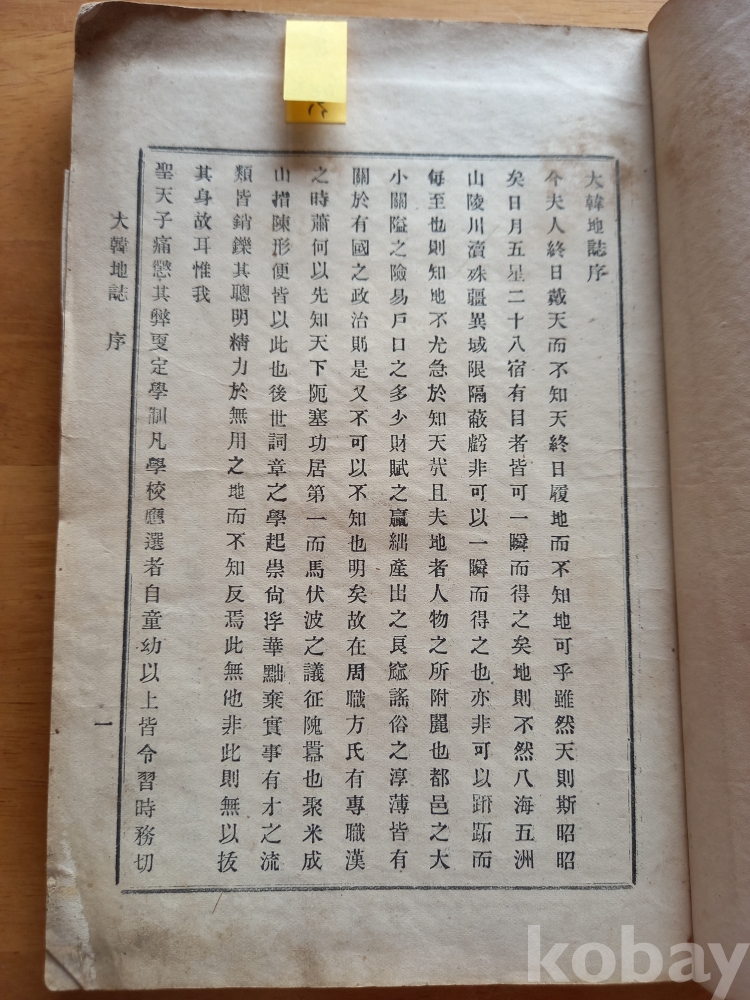 大韓地誌序
今夫人終日戴天而不知天終日履地而不知地可乎雖然天則斯昭昭
矣日月五星二十八宿有目者皆可一瞬而得之矣地則不然八海五洲
山陵川瀆殊疆異域限隔蔽虧非可以一瞬而得之也亦非可以躋跖而
每至也則知地不尤急於知天哉且夫地者人物之所附麗也都邑之大
小關隘之險易戶口之多少財賦之贏絀產出之良窳謠俗之淳薄皆有
關於有國之政治則是又不可以不知也明矣故在周職方氏有專職漢
之時蕭何以先知天下阨塞功居第一而馬伏波之議征隗囂也聚米成
山指陳形便皆以此也後世詞章之學起崇尙浮華黜棄實事有才之流
類皆銷鑠其聰明精力於無用之地而不知反焉此無他非此則無以拔
其身故耳惟我
聖天子痛懲其弊更定學制凡學校應選者自童幼以上皆令習時務切
大韓地誌 序
一
kobay